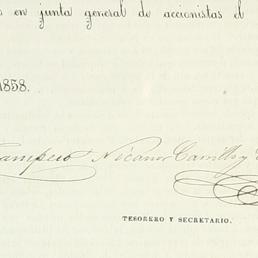 en junta general de accionistas el
1858.
Nicanor Carrillo y
TESORERO Y SECRETARIO.